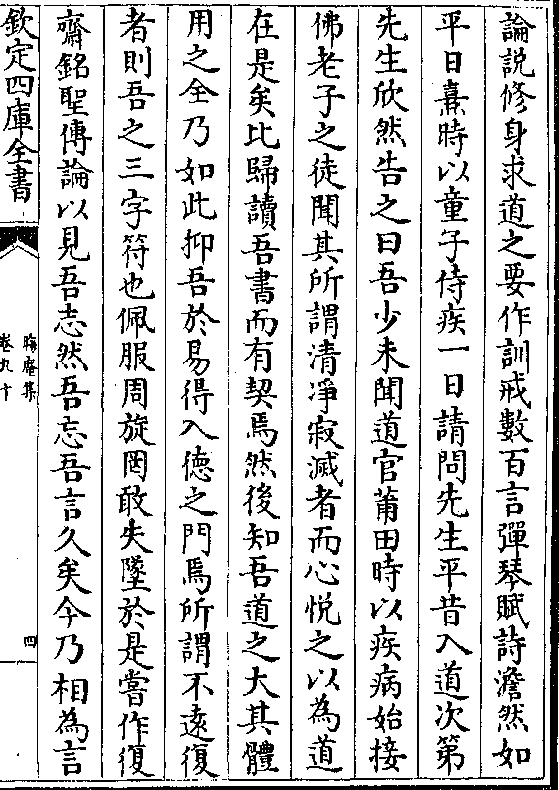 論説修身求道之要作訓戒數百言彈琴賦詩澹然如
平日熹時以童子侍疾一日請問先生平昔入道次第
先生欣然告之曰吾少未聞道官莆田時以疾病始接
佛老子之徒聞其所謂清凈寂滅者而心悦之以為道
在是矣比歸讀吾書而有契焉然後知吾道之大其體
用之全乃如此抑吾於易得入德之門焉所謂不逺復
者則吾之三字符也佩服周旋罔敢失墜於是嘗作復
齋銘聖傳論以見吾志然吾忘吾言久矣今乃相為言
欽定四庫全書
晦庵集
卷九十
四